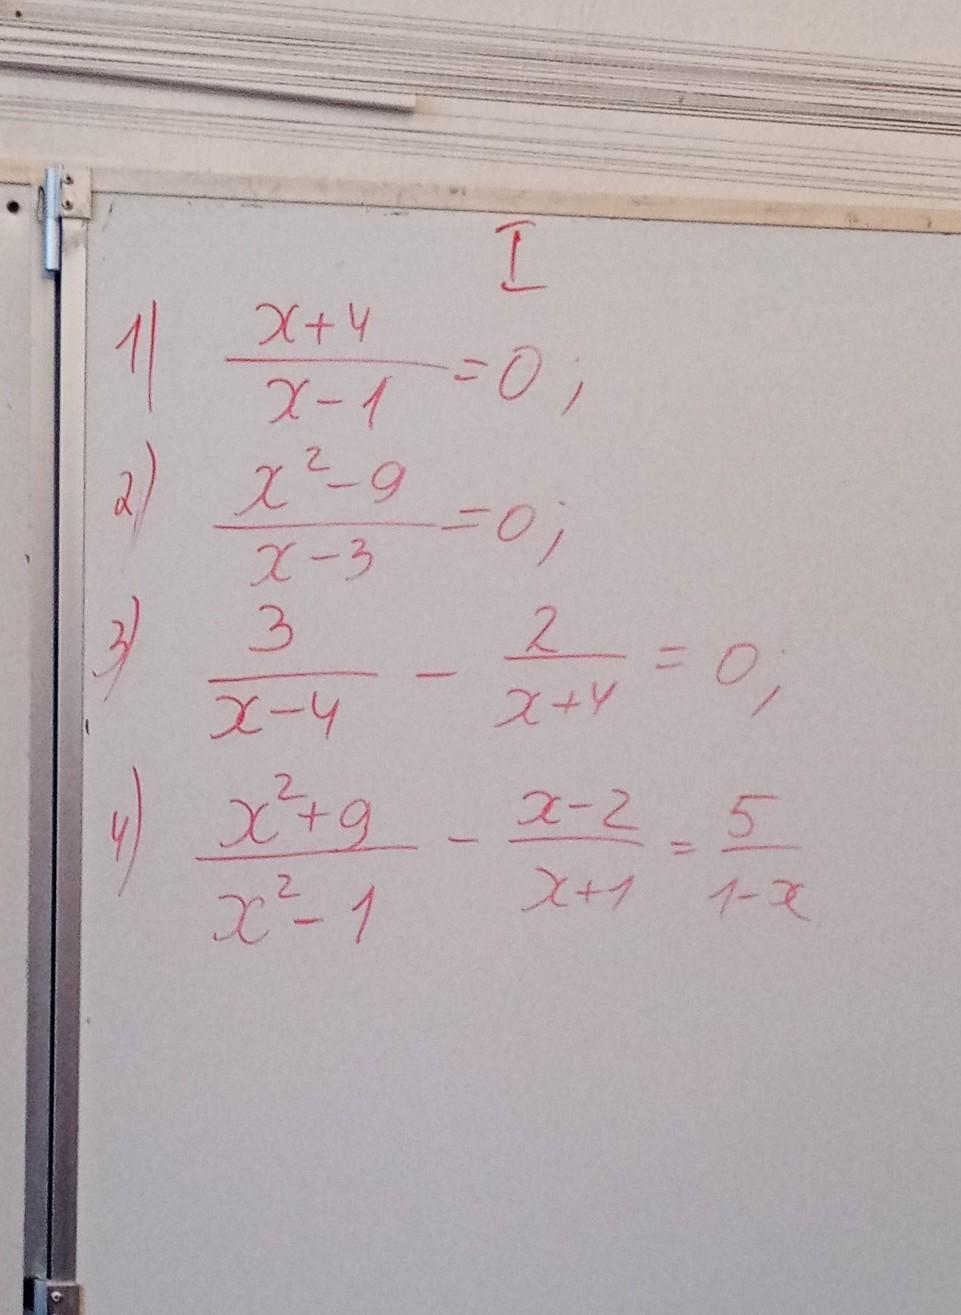 I
1) (x+4)/(x-1) = 0;
2) (x²-9)/(x-3) = 0;
3) 3/(x-4) - 2/(x+4) = 0;
4) (x²+9)/(x²-1) - (x-2)/(x+1) = 5/(1-x)